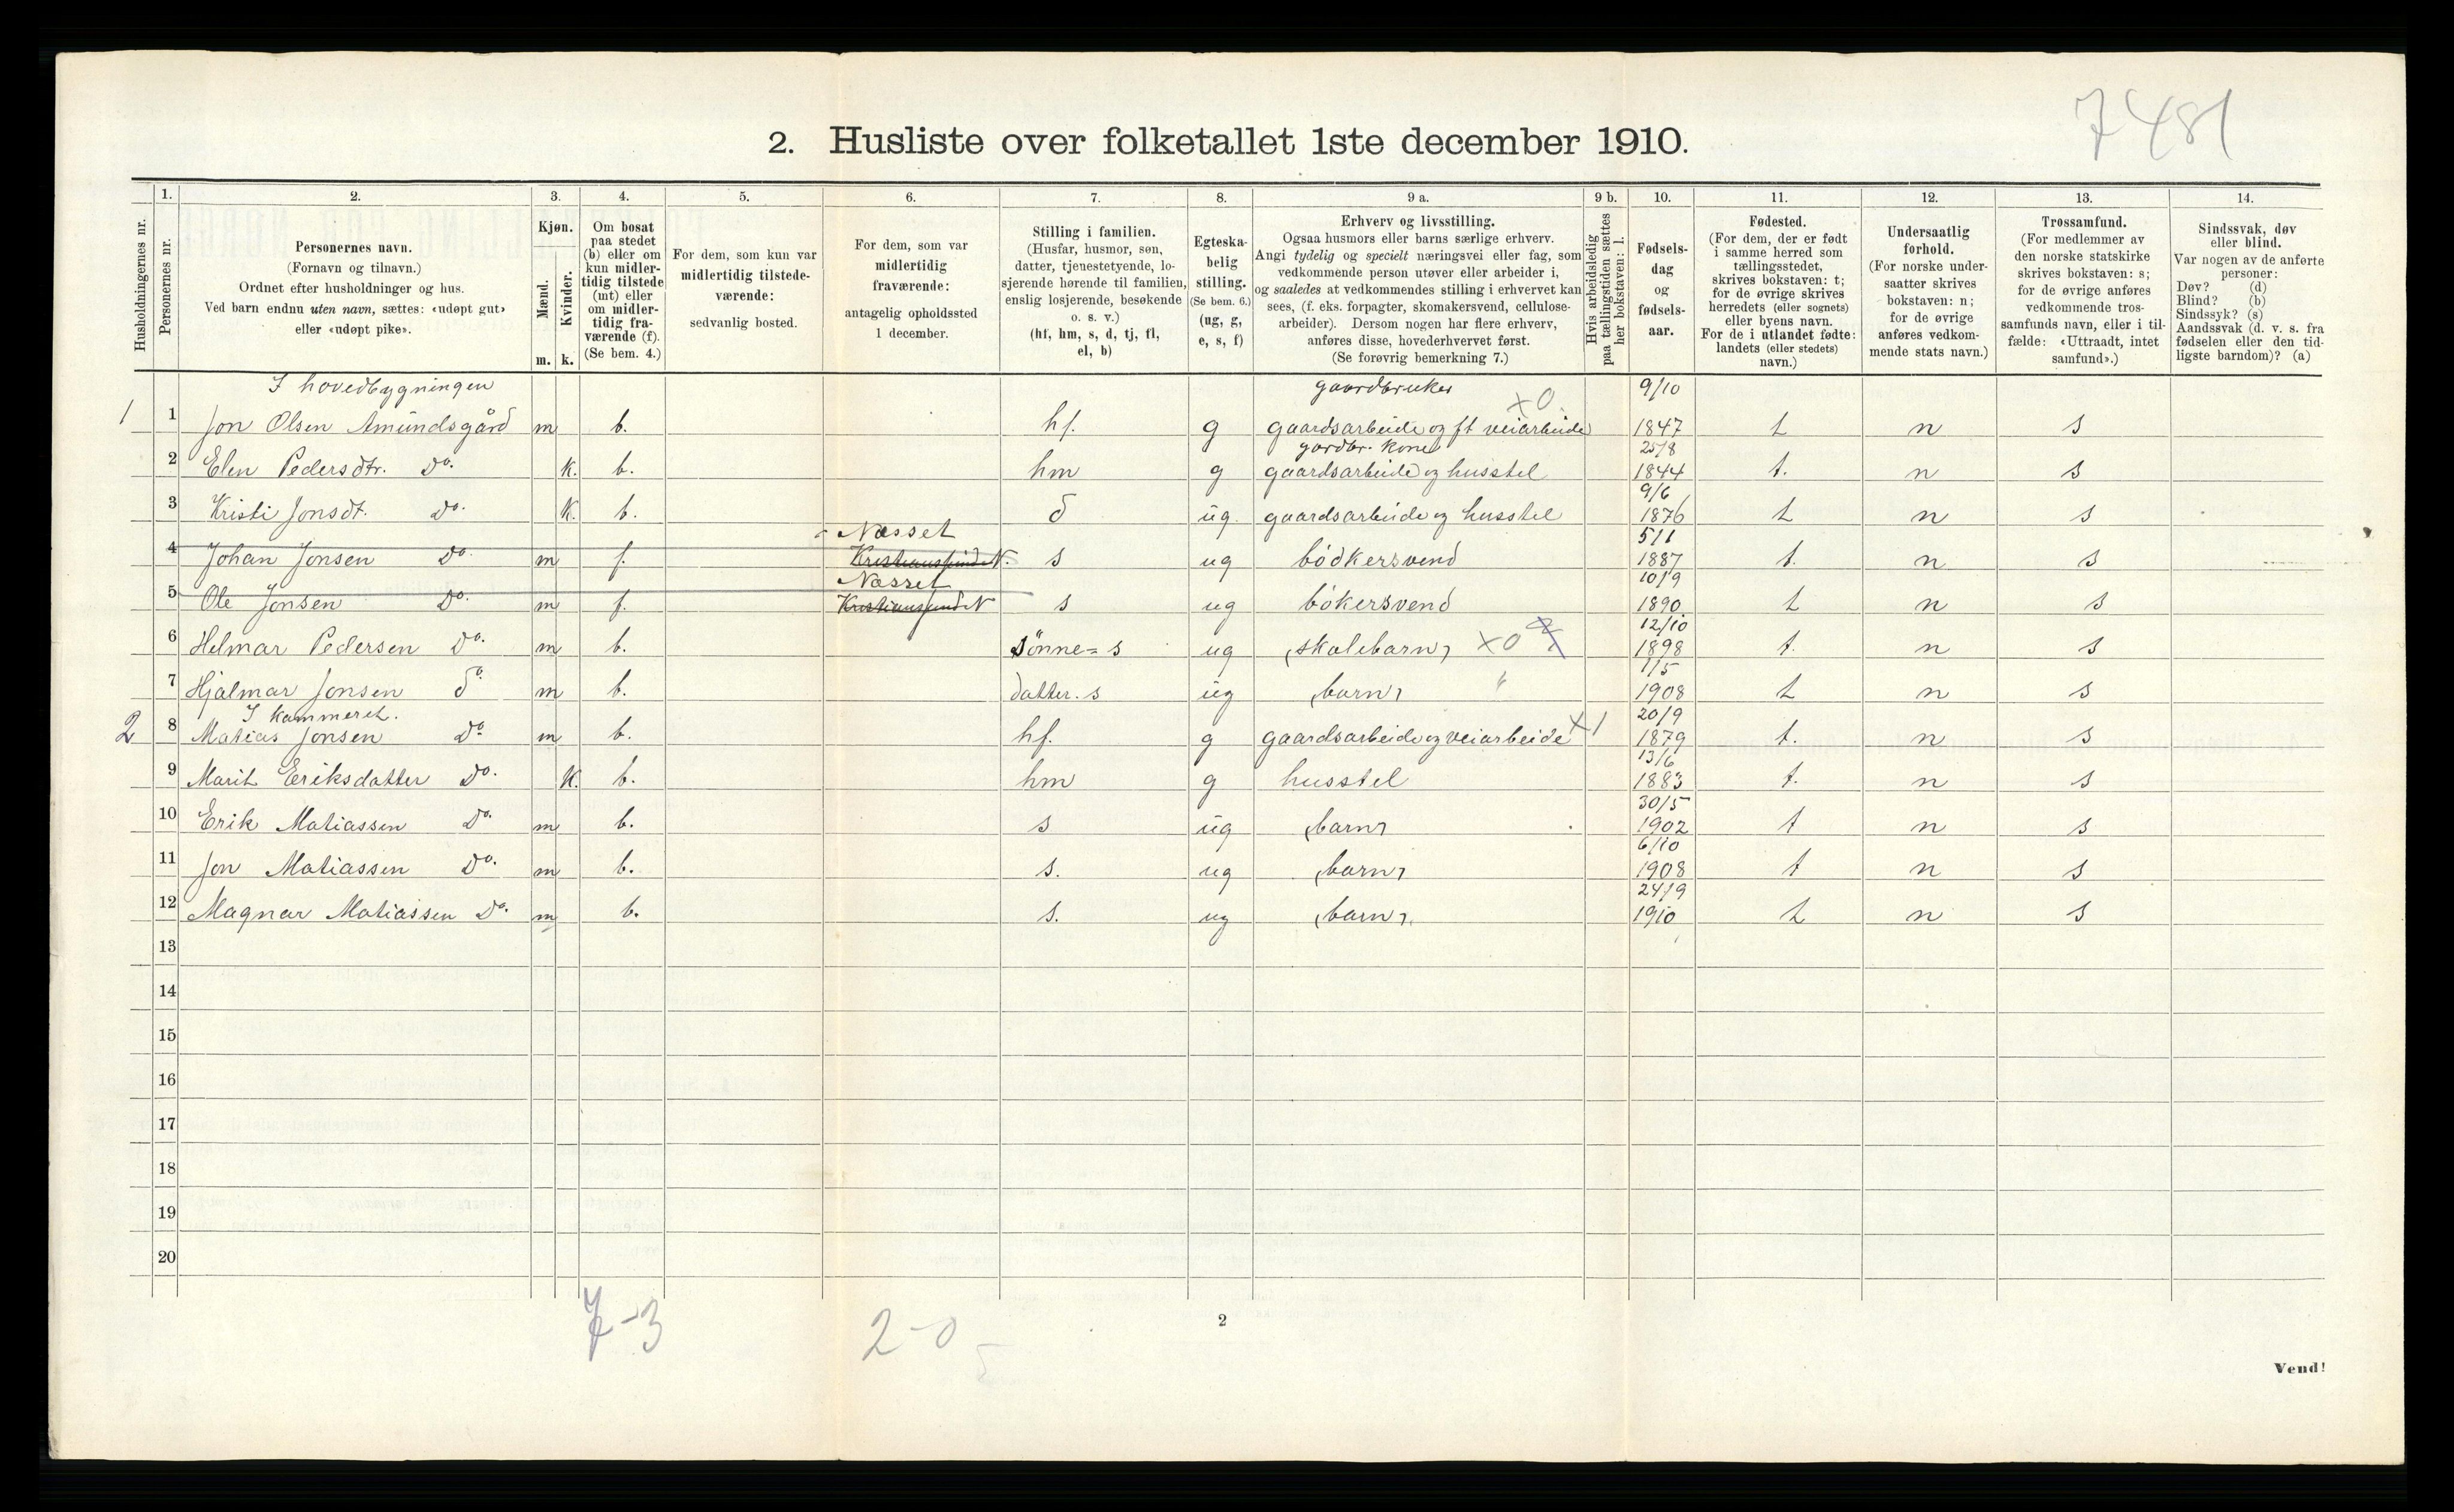 7481
2. Husliste over folketallet 1ste december 1910.
Husholdningernes nr.
1.
Personernes nr.
2.
Personernes navn.
(Fornavn og tilnavn.)
Ordnet efter husholdninger og hus.
Ved barn endnu uten navn, sættes: «udøpt gut»
eller «udøpt pike».
3.
Kjøn.
Mænd.
Kvinder.
m. k.
4.
Om bosat
paa stedet
(b) eller om
kun midler-
tidig tilstede
(mt) eller
om midler-
tidig fra-
værende (f).
(Se bem. 4.)
5.
For dem, som kun var
midlertidig tilstede-
værende:
sedvanlig bosted.
6.
For dem, som var
midlertidig
fraværende:
antagelig opholdssted
1 december.
7.
Stilling i familien.
(Husfar, husmor, søn,
datter, tjenestetyende, lo-
sjerende hørende til familien,
enslig losjerende, besøkende
o. s. v.)
(hf, hm, s, d, tj, fl,
el, b)
8.
Egteska-
belig
stilling.
(Se bem. 6.)
(ug, g,
e, s, f)
9 a.
Erhverv og livsstilling.
Ogsaa husmors eller barns særlige erhverv.
Angi tydelig og specielt næringsvei eller fag, som
vedkommende person utøver eller arbeider i,
og saaledes at vedkommendes stilling i erhvervet kan
sees, (f. eks. forpagter, skomakersvend, cellulose-
arbeider). Dersom nogen har flere erhverv,
anføres disse, hovederhvervet først.
(Se forøvrig bemerkning 7.)
9 b.
Hvis arbeidsledig
paa tællingstiden sættes
her bokstaven: l.
10.
Fødsels-
dag
og
fødsels-
aar.
11.
Fødested.
(For dem, der er født
i samme herred som
tællingsstedet,
skrives bokstaven: t;
for de øvrige skrives
herredets (eller sognets)
eller byens navn.
For de i utlandet fødte:
landets (eller stedets)
navn.)
12.
Undersaatlig
forhold.
(For norske under-
saatter skrives
bokstaven: n;
for de øvrige
anføres vedkom-
mende stats navn.)
13.
Trossamfund.
(For medlemmer av
den norske statskirke
skrives bokstaven: s;
for de øvrige anføres
vedkommende tros-
samfunds navn, eller i til-
fælde: «Uttraadt, intet
samfund».)
14.
Sindssvak, døv
eller blind.
Var nogen av de anførte
personer:
Døv? (d)
Blind? (b)
Sindssyk? (s)
Aandssvak (d. v. s. fra
fødselen eller den tid-
ligste barndom)? (a)
I hovedbygningen gaardbruker 9/10
1 1 Jon Olsen Amundsgård m b. hf. g gaardsarbeide og ft veiarbeide x0. 1847 t n s
gardbr. kone 25/8
2 Elen Pedersdtr. Do. k. b. hm g gaardsarbeide og husstel 1844 t. n s
9/6
3 Kristi Jonsdt. Do. k. b. d ug. gaardsarbeide og husstel 1876 t n s
Næsset 5/1
4 Johan Jonsen Do. m f. Kristianssund N. s ug bødkersvend 1887 t. n s
Næsset 10/9
5 Ole Jonsen Do. m f. Kristianssund N s ug bøkersvend 1890 t n s
12/10
6 Helmar Pedersen Do. m b. Sønne=s ug (skolebarn) x0 1898 t. n s
1/5
7 Hjalmar Jonsen do. m b. datter.s ug (barn) " 1908 t n s
I kammeret. 20/9
2 8 Matias Jonsen Do m b. hf. g gaardsarbeide og veiarbeide x1 1879 t. n s
13/6
9 Marit Eriksdatter Do. k. b. hm g husstel 1883 t. n s
30/5
10 Erik Matiassen Do. m b. s ug (barn) 1902 t n s
6/10
11 Jon Matiassen Do. m b. s. ug (barn) 1908 t n s
24/9
12 Magnar Matiassen Do. m b. s. ug (barn) 1910 t n s
13
14
15
16
17
18
19
20
7-3 2-0
2
Vend!